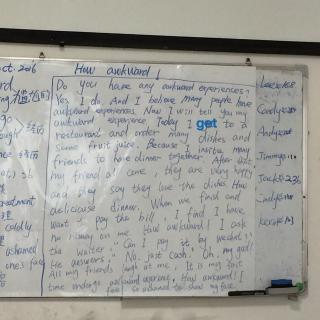 Oct. 2016
How awkward!
Do you have any awkward experiences?
Yes I do. And I believe many people have
awkward experiences. Now I will tell you my
awkward experience. Today I get to a
restaurant and order many dishes and
some fruit juice. Because I invite many
friends to have dinner together. After eat,
my friend at came, they are very happy
and they say they love the dishes. How
delicious dinner. When we finish and
want to pay the bill, I find I have
no money on me. How awkward! I ask
the waiter, "Can I pay it by wechat?"
He answers, "No, just cash." Oh, my god!
All my friends laugh at me. It is my first
time awkward experience. How awkward! I
feel so ashamed to show my face.
经历
treatment
coldly
ashamed
one's face
Candy
Andy
Jimmy
Jack
Cindy